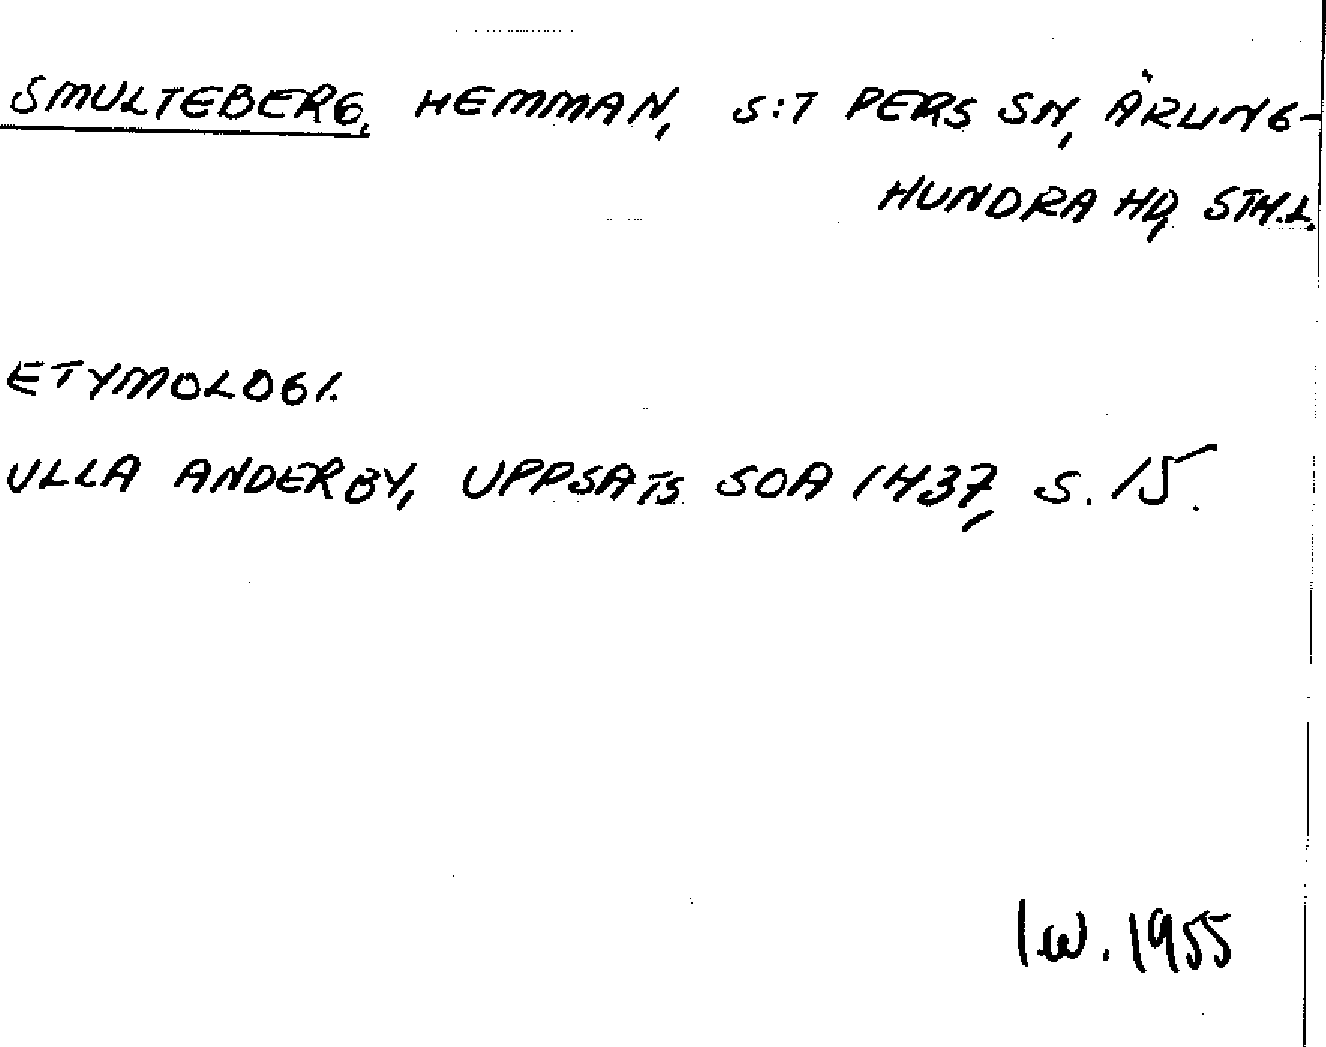 SMULTEBERG, HEMMAN, S:T PERS SN, ÄRLING-
HUNDRA HD, STH.L.
ETYMOLOGI.
ULLA ANDERBY, UPPSATS SOA 1437, S. 15.
IW. 1955